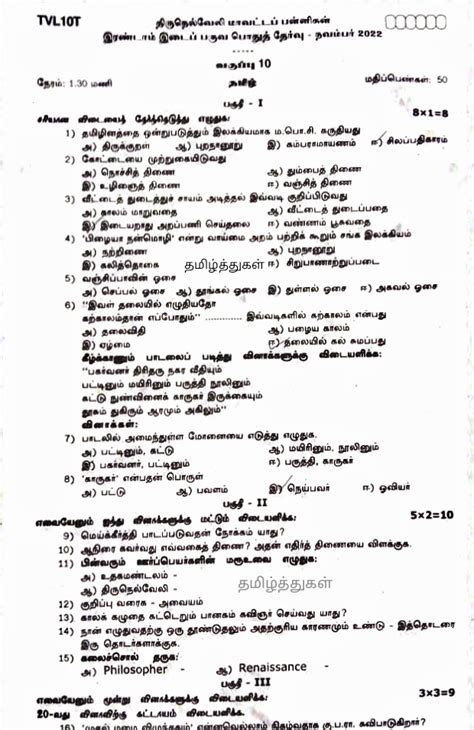 TVL10T
திருநெல்வேலி மாவட்டப் பள்ளிகள்
இரண்டாம் இடைப் பருவ பொதுத் தேர்வு - நவம்பர் 2022
வகுப்பு 10
நேரம்: 1.30 மணி தமிழ் மதிப்பெண்கள்: 50
பகுதி - I
சரியான விடையைத் தேர்ந்தெடுத்து எழுதுக: 8x1=8
1) தமிழினத்தை ஒன்றுபடுத்தும் இலக்கியமாக ம.பொ.சி. கருதியது
அ) திருக்குறள் ஆ) புறநானூறு இ) கம்பராமாயணம் ஈ) சிலப்பதிகாரம்
2) கோட்டையை முற்றுகையிடுவது
அ) நொச்சித் திணை ஆ) தும்பைத் திணை
இ) உழிஞைத் திணை ஈ) வஞ்சித் திணை
3) வீட்டைத் துடைத்துச் சாயம் அடித்தல் இவ்வடி குறிப்பிடுவது
அ) காலம் மாறுவதை ஆ) வீட்டைத் துடைப்பதை
இ) இடையறாது அறப்பணி செய்தலை ஈ) வண்ணம் பூசுவதை
4) 'பிழையா நன்மொழி' என்று வாய்மை அறம் பற்றிக் கூறும் சங்க இலக்கியம்
அ) நற்றிணை ஆ) புறநானூறு
இ) கலித்தொகை தமிழ்த்துகள் ஈ) சிறுபாணாற்றுப்படை
5) வஞ்சிப்பாவின் ஓசை
அ) செப்பல் ஓசை ஆ) தூங்கல் ஓசை இ) துள்ளல் ஓசை ஈ) அகவல் ஓசை
6) "இவள் தலையில் எழுதியதோ
கற்காலம்தான் எப்போதும்" ............ இவ்வடிகளில் கற்காலம் என்பது
அ) தலைவிதி ஆ) பழைய காலம்
இ) ஏழ்மை ஈ) தலையில் கல் சுமப்பது
கீழ்க்காணும் பாடலைப் படித்து வினாக்களுக்கு விடையளிக்க:
"பகர்வனர் திரிதரு நகர வீதியும்
பட்டினும் மயிரினும் பருத்தி நூலினும்
கட்டு நுண்வினைக் காருகர் இருக்கையும்
தூசும் துகிரும் ஆரமும் அகிலும்"
வினாக்கள்:
7) பாடலில் அமைந்துள்ள மோனையை எடுத்து எழுதுக.
அ) பட்டினும், கட்டு ஆ) மயிரினும், நூலினும்
இ) பகர்வனர், பட்டினும் ஈ) பருத்தி, காருகர்
8) 'காருகர்' என்பதன் பொருள்
அ) பட்டு ஆ) பவளம் இ) நெய்பவர் ஈ) ஓவியர்
பகுதி - II
எவையேனும் ஐந்து வினாக்களுக்கு மட்டும் விடையளிக்க: 5x2=10
9) மெய்க்கீர்த்தி பாடப்படுவதன் நோக்கம் யாது?
10) ஆநிரை கவர்வது எவ்வகைத் திணை? அதன் எதிர்த் திணையை விளக்குக.
11) பின்வரும் ஊர்ப்பெயர்களின் மரூஉவை எழுதுக:
அ) உதகமண்டலம் -
ஆ) திருநெல்வேலி - தமிழ்த்துகள்
12) குறிப்பு வரைக - அவையம்
13) காலக் கழுதை கட்டெறும் பானதும் கவிஞர் செய்வது யாது?
14) நான் எழுதுவதற்கு ஒரு தூண்டுதலும் அதற்குரிய காரணமும் உண்டு - இத்தொடரை
இரு தொடர்களாக்குக.
15) கலைச்சொல் தருக:
அ) Philosopher - ஆ) Renaissance -
பகுதி - III
எவையேனும் மூன்று வினாக்களுக்கு விடையளிக்க: 3x3=9
20-வது வினாவிற்கு கட்டாயம் விடையளிக்க.